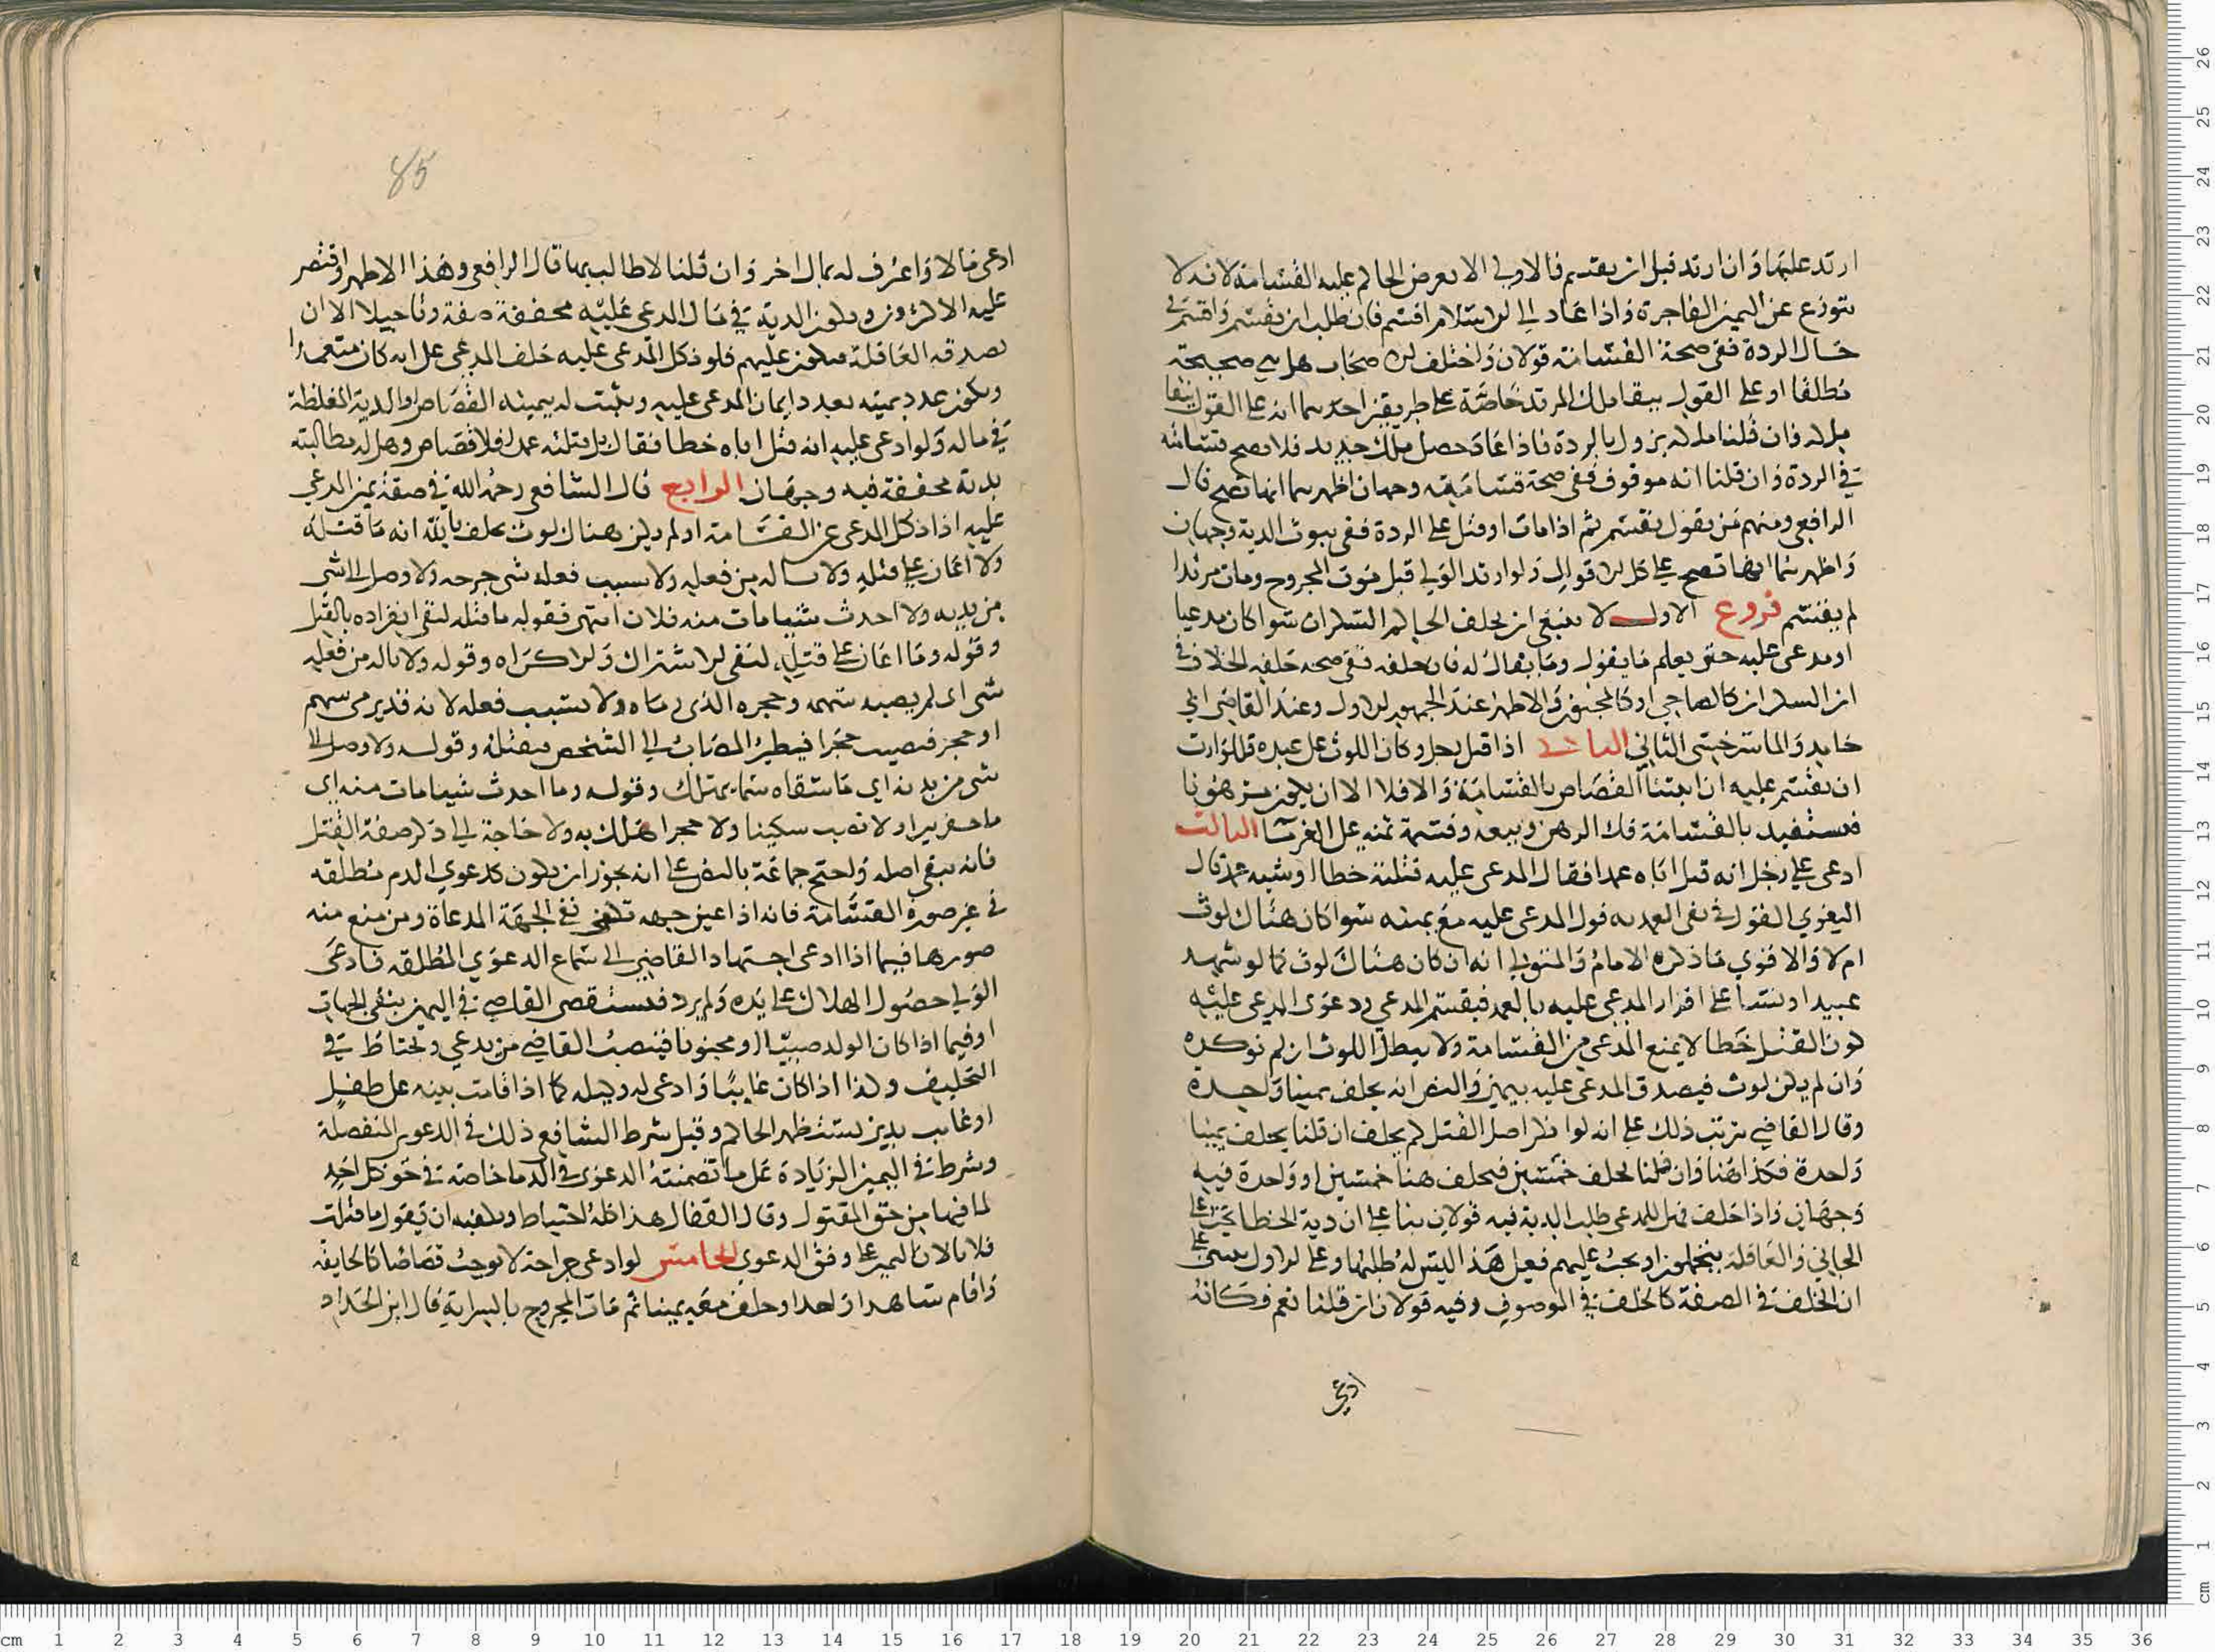 ارتد عليها وان ارتد قبل ان يقسم فالاولى الا يعرض الحاكم عليه القسامة لانه لا
يتورع عن اليمين الفاجرة واذا عاد الى الاسلام اقسم فان طلب ان يقسم واقسم في
حال الردة ففي صحة القسامة قولان واختلف الاصحاب هل هي صحيحة
مطلقا او على القول ببقا ملك المرتد خاصة على طريقين احدهما انه على القول ببقا
ملكه وان قلنا ملكه يزول بالردة فاذا عاد حصل ملك جديد فلا يصح قسامته
في الردة وان قلنا انه موقوف ففي صحة قسامته وجهان اظهرهما انها تصح قال
الرافعي ومنهم من يقول يقسم ثم اذا مات او قتل على الردة ففي ثبوت الدية وجهان
واظهرهما انها تصح على كل الاقوال ولو ارتد الولي قبل موت المجروح ومات مرتدا
لم يقسم فروع الاول لا ينبغي ان يحلف الحاكم السكران سوا كان مدعيا
او مدعى عليه حتى يعلم ما يقول وما يقال له فان حلفه ففي صحه حلفه الخلاف في
ان السكران كالصاحي او كالمجنون والاظهر عند الجمهور الاول وعند القاضي ابي
حامد والماسرخسي الثاني الثاني اذا قتل رجل وكان اللوث على عبده فللوارث
ان يقسم عليه ان اثبتنا القصاص بالقسامة والا فلا الا ان يكون مرهونا
فيستفيد بالقسامة فك الرهن وبيعه وقسمة ثمنه على الغرما الثالث
ادعى على رجل انه قتل اباه عمدا فقال المدعى عليه قتلته خطا او شبه عمد قال
البغوي القول في نفي العمديه قول المدعى عليه مع يمينه سوا كان هناك لوث
ام لا والاقوى ما ذكره الامام والمتولي انه ان كان هناك لوث كما لو شهد
عبيد او نسا على اقرار المدعى عليه بالعمد فيقسم المدعي ودعوى المدعى عليه
كون القتل خطا لا يمنع المدعي من القسامة ولا يبطل اللوث ان لم نوكده
وان لم يكن لوث فيصدق المدعى عليه بيمين والنص انه يحلف يمينا واحدة
وقال القاضي يترتب ذلك على انه لو انكر اصل القتل كم يحلف ان قلنا يحلف يمينا
واحدة فكذا هنا وان قلنا يحلف خمسين فيحلف هنا خمسين او واحدة فيه
وجهان واذا حلف فهل للمدعي طلب الدية فيه قولان بنا على ان دية الخطا تجب على
الجاني والعاقلة يتحملون او تجب عليهم فعلى هذا ليس له طلبها وعلى الاول يبنى على
ان الخلف في الصفة كالخلف في الموصوف وفيه قولان ان قلنا نعم فكانه
ادعى
85
ادعى مالا واعترف له بمال اخر وان قلنا لا طالب بها قال الرافعي وهذا الاظهر واقتصر
عليه الاكثرون وتكون الدية في مال المدعى عليه مخففة صفة وتاجيلا الا ان
تصدقه العاقلة فتكون عليهم فلو نكل المدعى عليه حلف المدعي على انه كان متعمدا
ويكون عدد يمينه بعدد ايمان المدعى عليه ويثبت له بيمينه القصاص او الدية المغلظة
في ماله ولو ادعى عليه انه قتل اباه خطا فقال بل قتلته عمدا فلا قصاص وهل له مطالبته
بدية مخففة فيه وجهان الرابع قال الشافعي رحمه الله في صفة يمين المدعى
عليه اذا نكل المدعي عن القسامة او لم يكن هناك لوث يحلف بالله انه ما قتله
ولا اعان على قتله ولا ناله من فعله ولا بسبب فعله شي جرحه ولا وصل الى شي
من بدنه ولا احدث شيا مات منه فلان انتهى فقوله ما قتله لنفي انفراده بالقتل
وقوله وما اعان على قتله لنفي الاشتراك والاكراه وقوله ولا ناله من فعله
شي اي لم يصبه سهمه وحجره الذي رماه ولا بسبب فعله لانه قد يرمي سهم
او حجر فيصيب حجرا فيطير المصاب الى الشخص فيقتله وقوله ولا وصل الى
شي من بدنه اي ما سقاه سما يهلك وقوله وما احدث شيا مات منه اي
ما حفر بيرا ولا نصب سكينا ولا حجرا هلك به ولا حاجة الى ذكر صفة القتل
فانه ينفي اصله واحتج جماعة بالنص على انه يجوز ان يكون كدعوى الدم مطلقه
في غير صورة القسامة فانه اذا عين جهه كفى نفي الجهة المدعاة ومن منع منه
صورها فيما اذا ادعى اجتهاد القاضي الى سماع الدعوى المطلقه فادعى
الولي حصول الهلاك على يده ولم يرد فيستقصي القاضي في اليمين بنفي الجهات
او فيما اذا كان الولد صبيا او مجنونا فينصب القاضي من يدعي ويحتاط في
التحليف وكذا اذا كان غايبا وادعى له وكيله كما اذا قامت بينه على طفل
او غايب بدين يستظهر الحاكم وقيل شرط الشافعي ذلك في الدعوى المفصلة
وشرط في اليمين الزيادة على ما تضمنته الدعوى في الدما خاصة في حق كل احد
لما فيها من حق المقتول وقال القفال هذا كله احتياط ويكفيه ان يقول ما قتلت
فلانا لان اليمين على وفق الدعوى الخامس لو ادعى جراحة لا توجب قصاصا كالجايفه
واقام شاهدا واحدا وحلف معه يمينا ثم مات المجروح بالسراية قال ابن الحداد